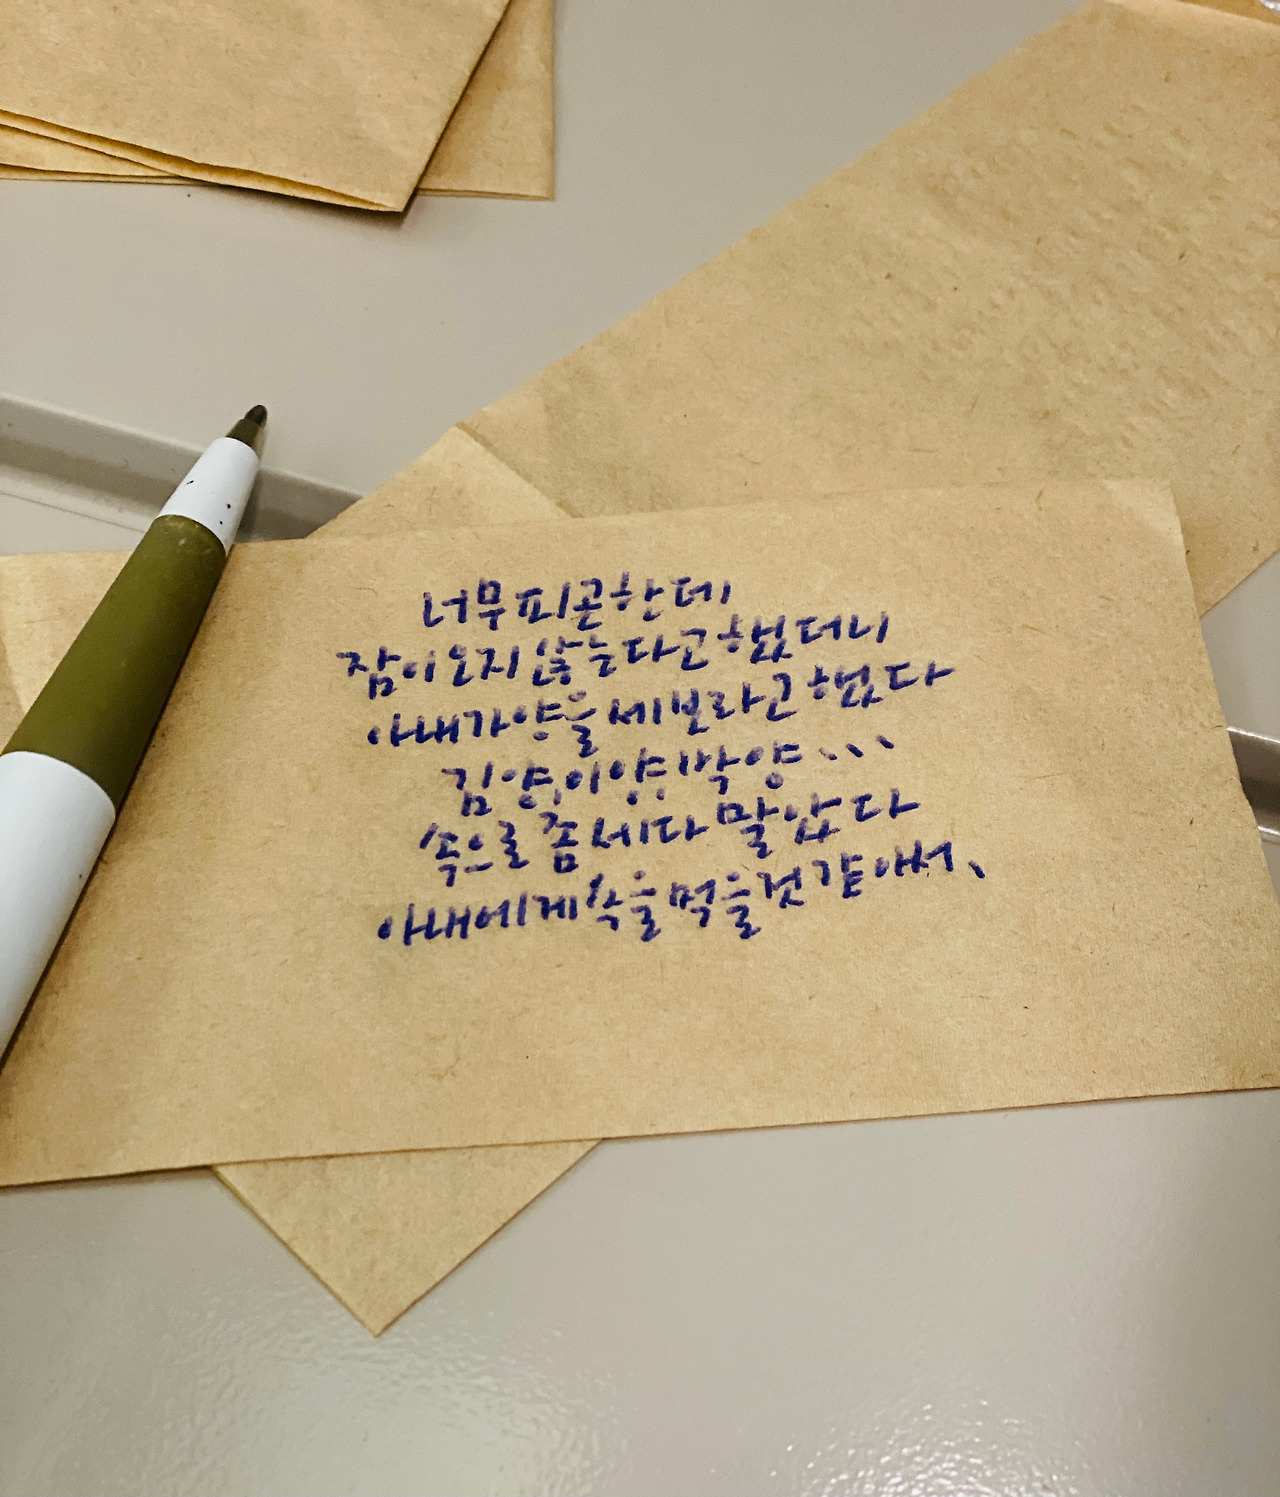 너무 피곤한데
잠이 오지 않는다고 했더니
아내가 양을 세보라고 했다
김양, 이양, 박양...
속으로 좀 세다 말았다
아내에게 쑥을 먹을것 같아서.